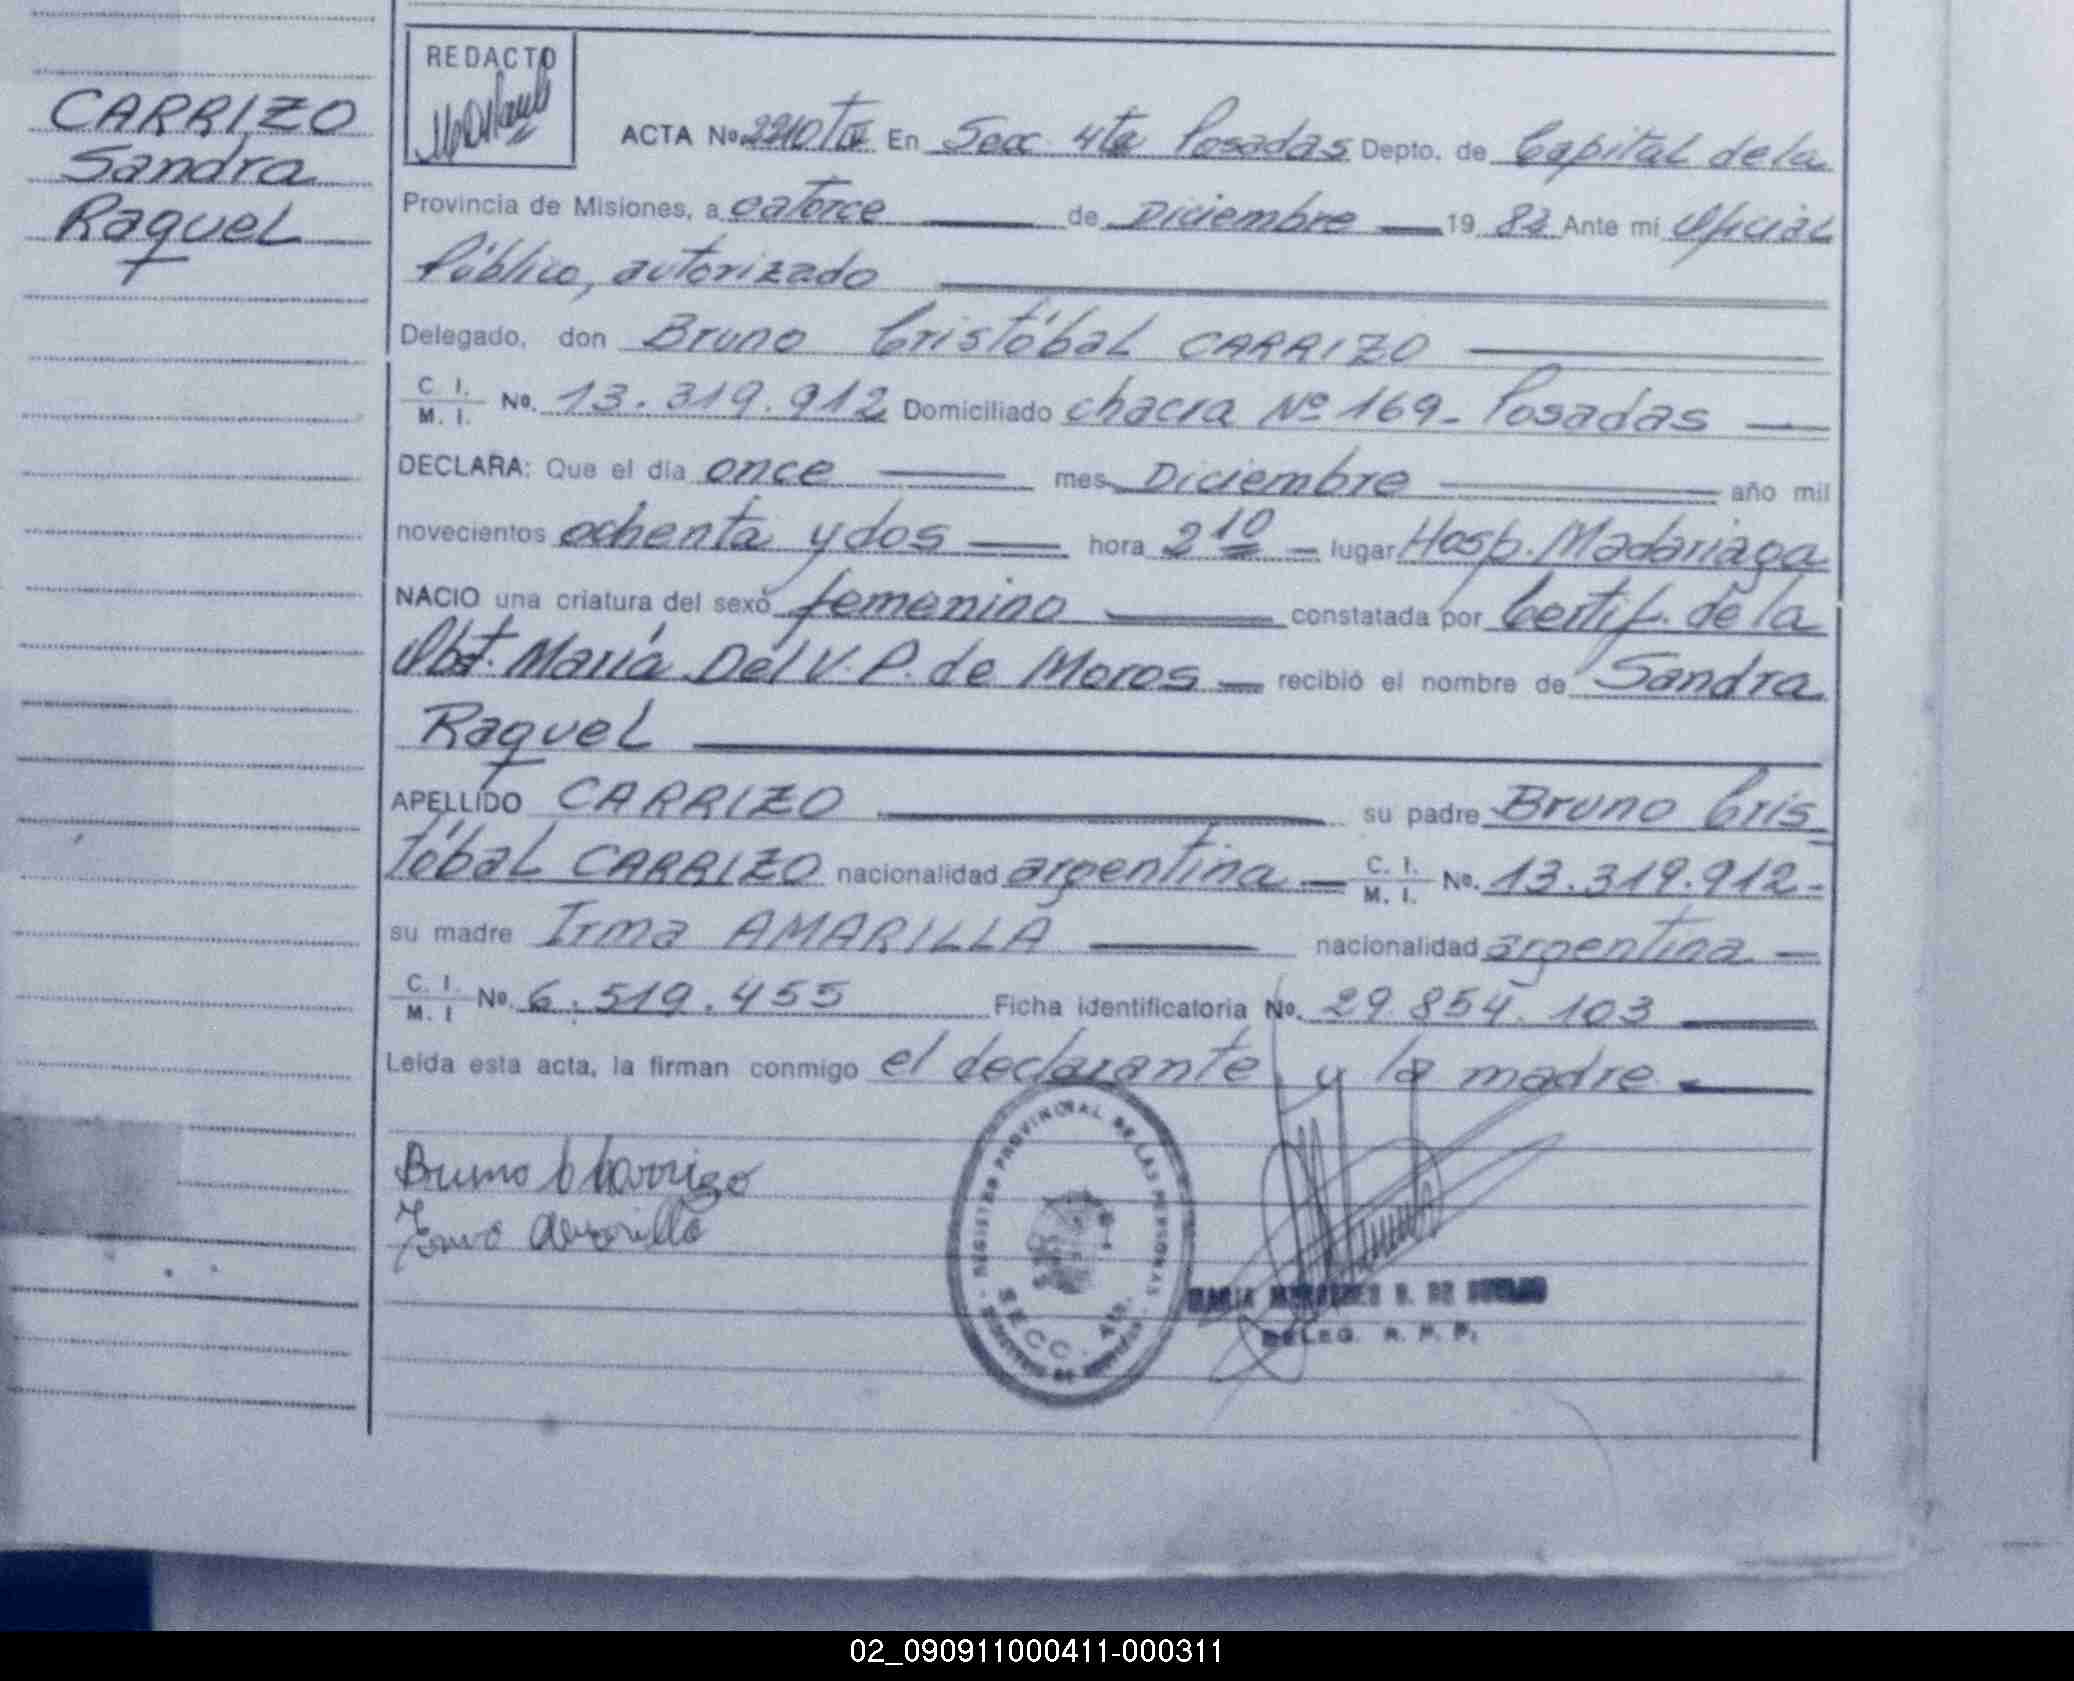 CARRIZO
Sandra
Raquel
REDACTO
ACTA No. 2210 T IV En Secc 4ta Posadas Depto. de Capital de la
Provincia de Misiones, a catorce de Diciembre 19 82 Ante mi Oficial
Público, autorizado
Delegado, don Bruno Cristóbal CARRIZO
C. I.
M. I. No. 13.319.912 Domiciliado chacra Nº 169- Posadas
DECLARA: Que el día once mes Diciembre año mil
novecientos ochenta y dos hora 2 10 lugar Hosp. Madariaga
NACIO una criatura del sexo femenino constatada por Certif. de la
Obst. María Del V. P. de Moros recibió el nombre de Sandra
Raquel
APELLIDO CARRIZO su padre Bruno Cris
tóbal CARRIZO nacionalidad argentina C. I. M. I. No. 13.319.912-
su madre Irma AMARILLA nacionalidad argentina
C. I.
M. I No. 6.519.455 Ficha identificatoria No. 29.854.103
Leída esta acta, la firman conmigo el declarante y la madre
Bruno C Carrizo
Irma Amarilla
REGISTRO PROVINCIAL DE LAS PERSONAS
SECC. 4ta.
MARIA DE
DELEG. R. P. P.
02_090911000411-000311